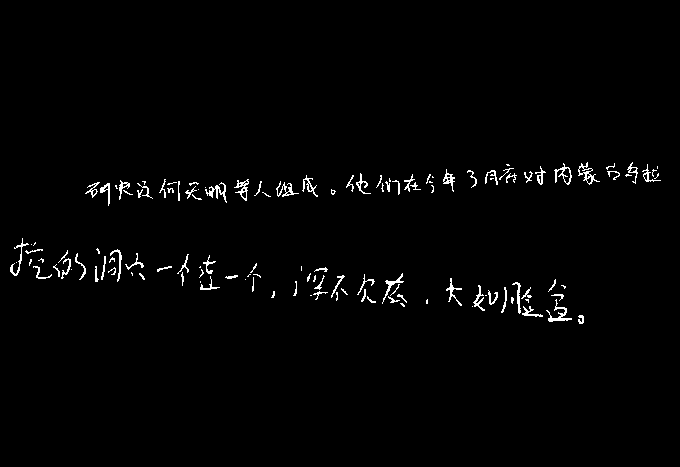 研究员何天明等人组成。他们在今年3月底对内蒙古乌拉
挖的洞穴一个连一个，深不欠底，大如脸盆。